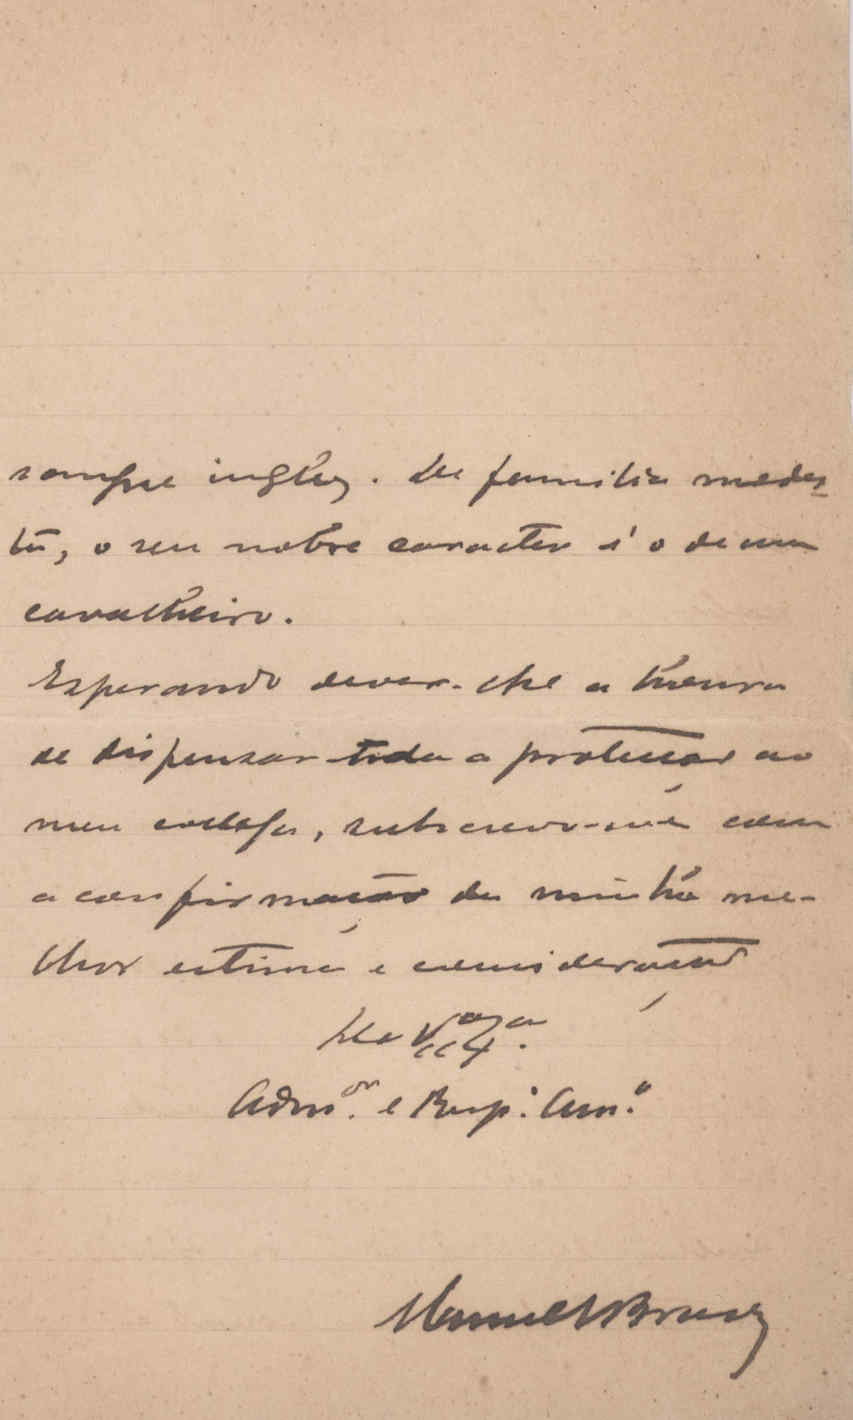 sangue inglez. De familia modes-
ta, o seu nobre caracter é o de um
cavalheiro.
Esperando dever-lhe a honra
de dispensar toda a protecção ao
meu collega, subscrevo-me com
a confirmação da minha me-
lhor estima e consideração
De V. Exa.
Admor. e Resp. Am.o
Manuel